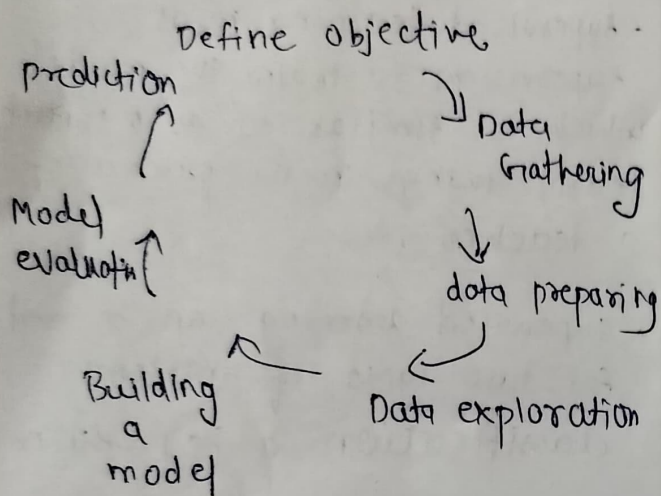 Define objective
Data
Gathering
data preparing
Data exploration
Building
a
model
Model
evaluatin
prediction